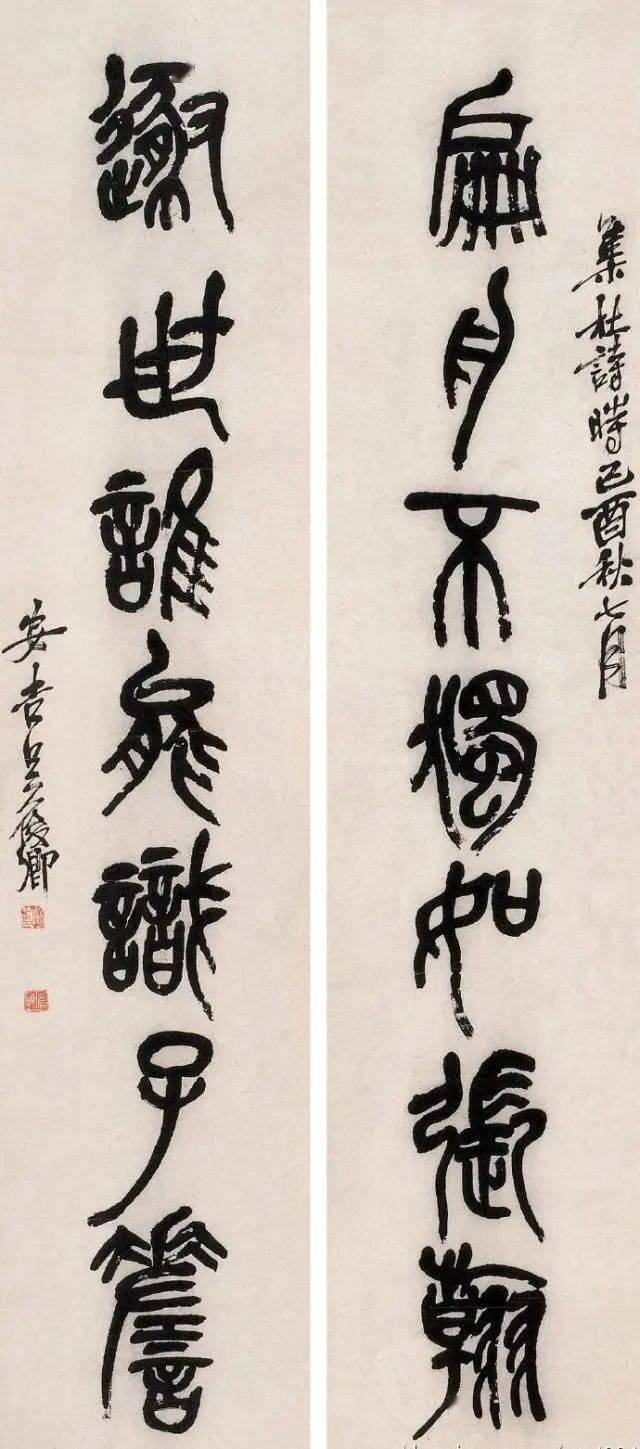 集杜詩時己酉秋七月
扁舟不獨如張翰
世誰能識子
安吉吳俊卿